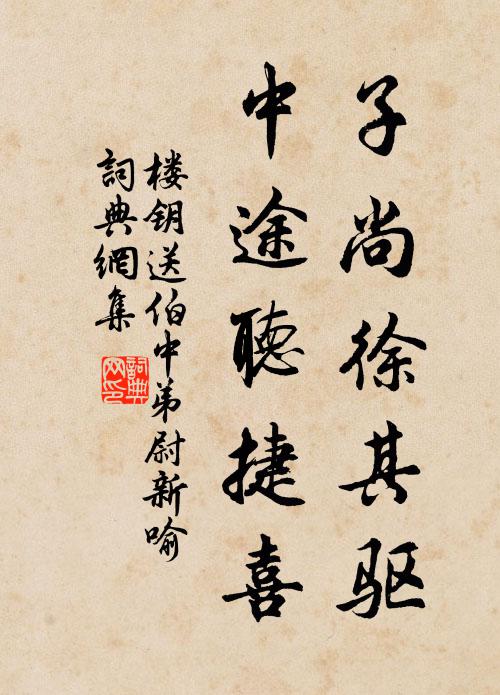 子尚徐其驱
中途聽捷喜
楼钥送伯中弟尉新喻
詞典網集
詞典网印